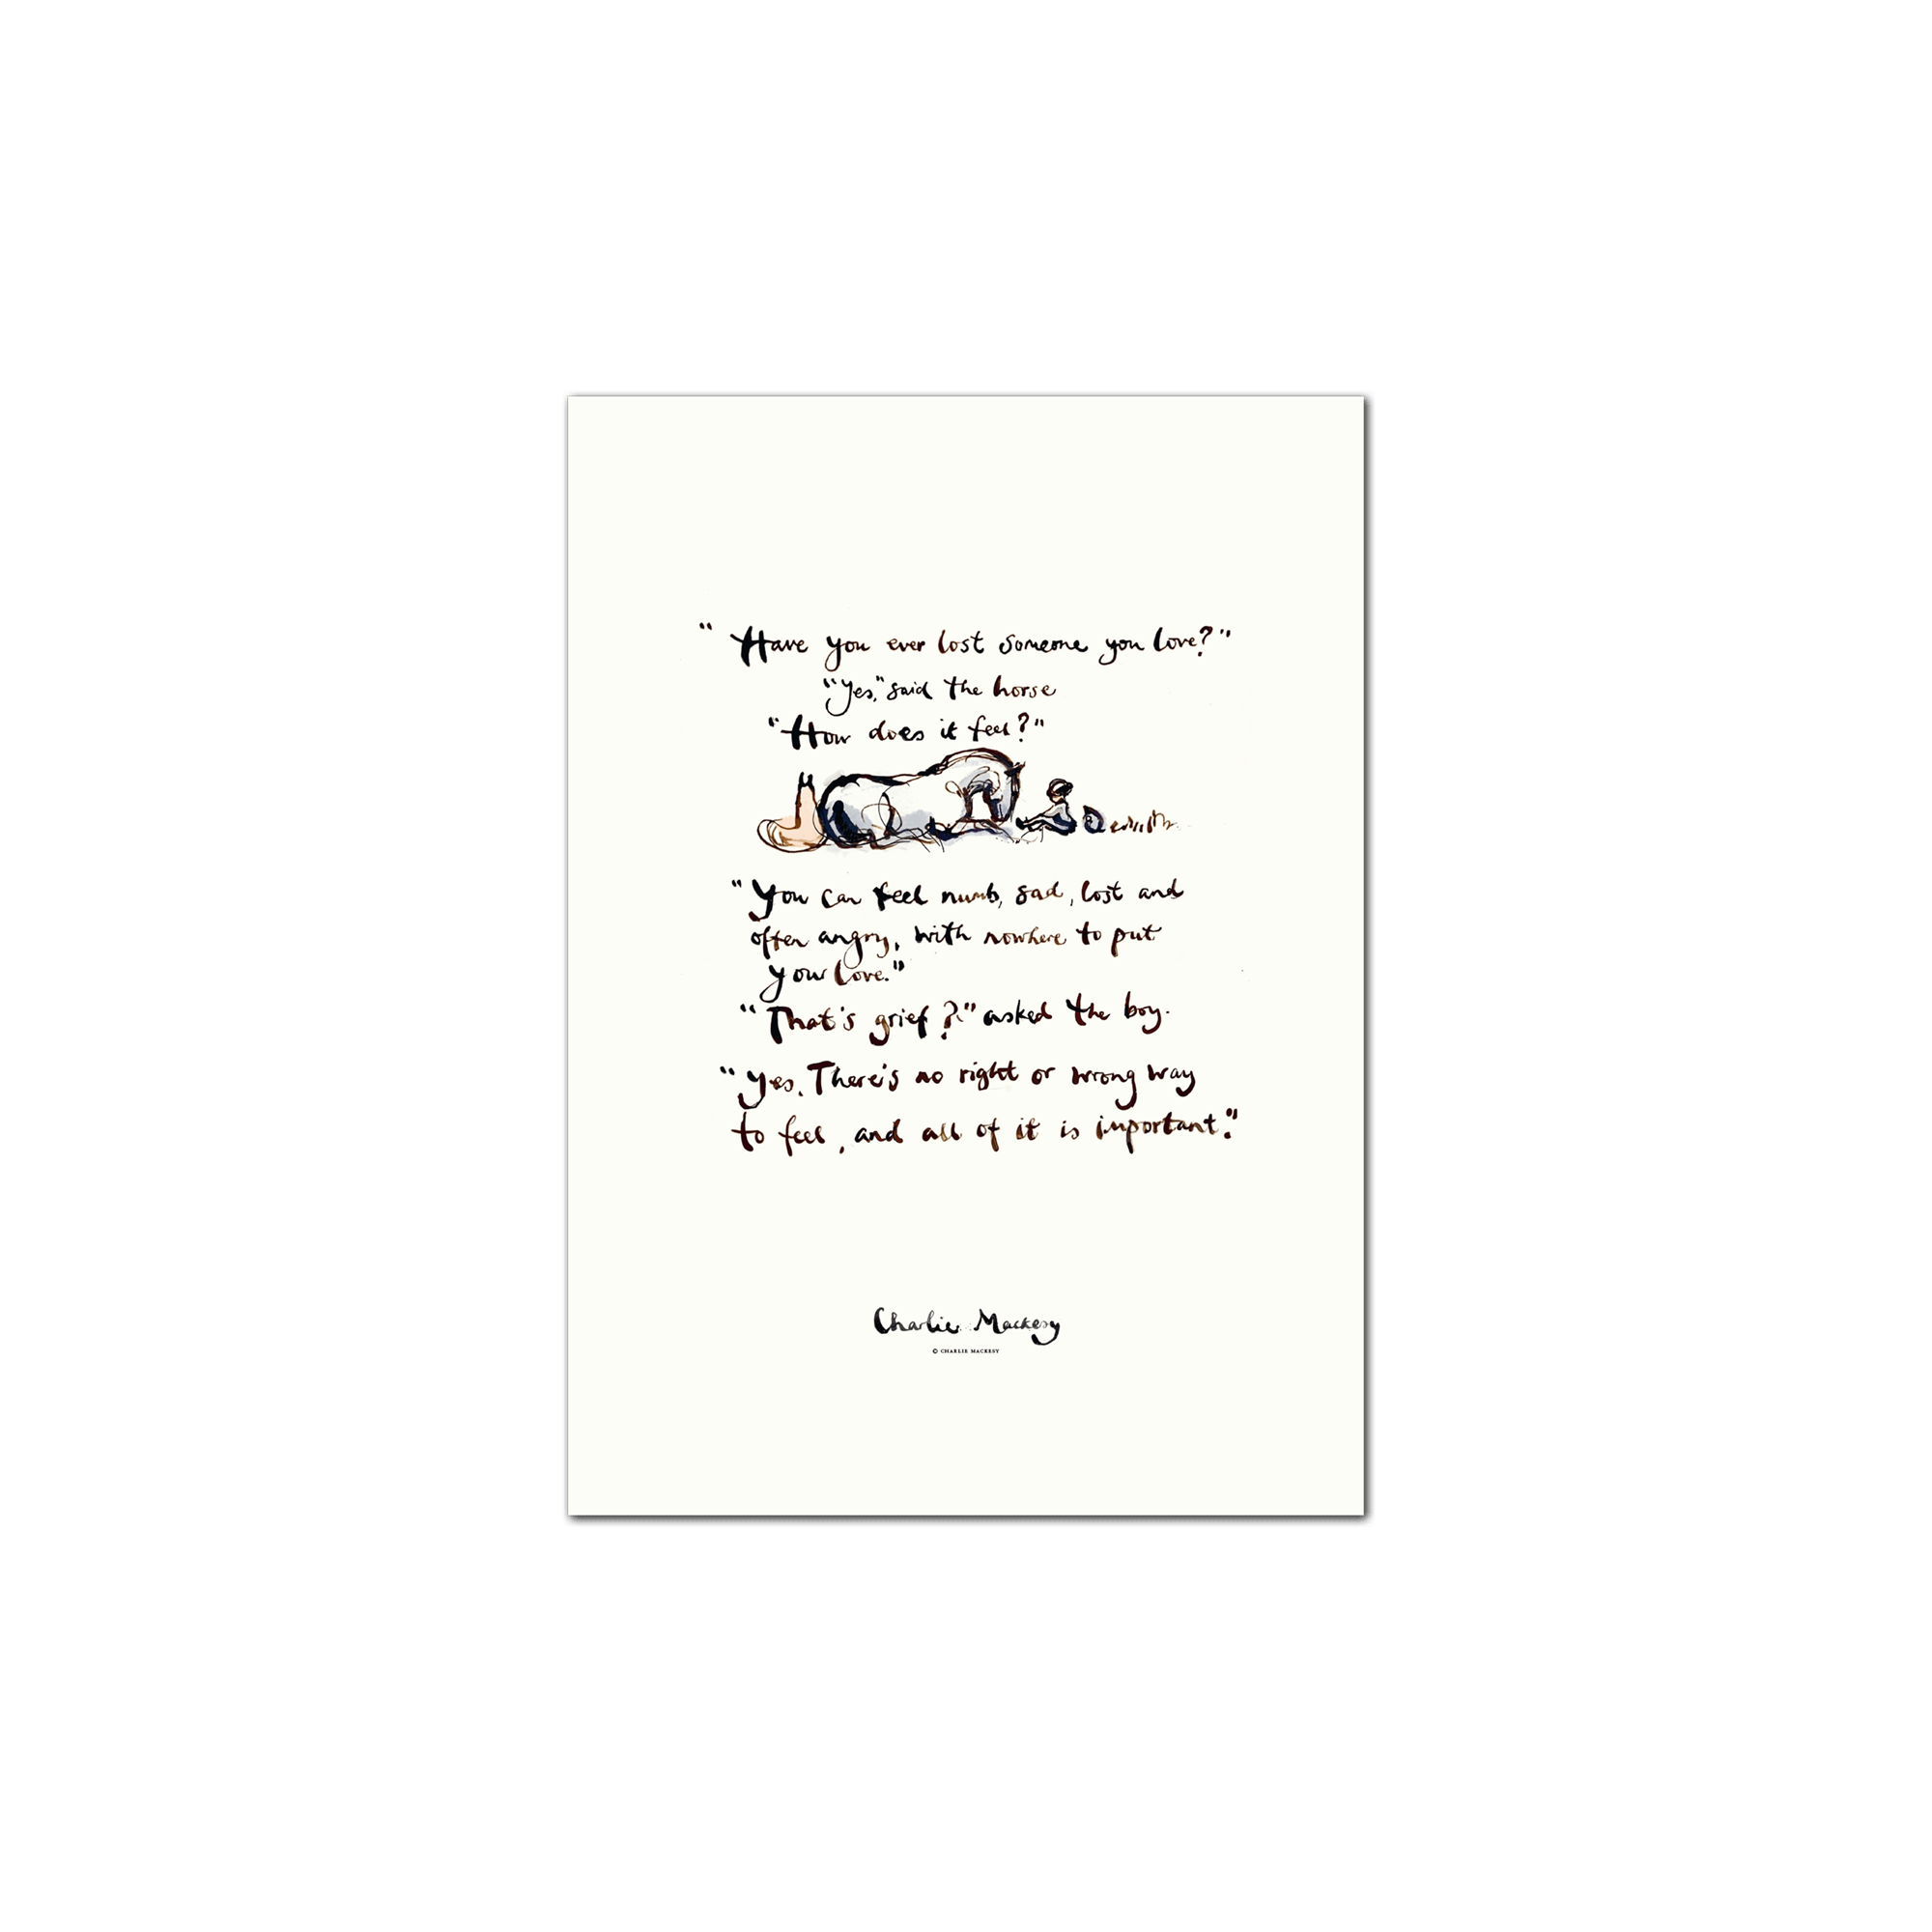 " Have you ever lost someone you love?"
"Yes," said the horse
"How does it feel?"
"You can feel numb, sad, lost and
often angry, with nowhere to put
your love."
"That's grief?" asked the boy.
"Yes. There's no right or wrong way
to feel, and all of it is important."
Charlie Mackesy
© CHARLIE MACKESY